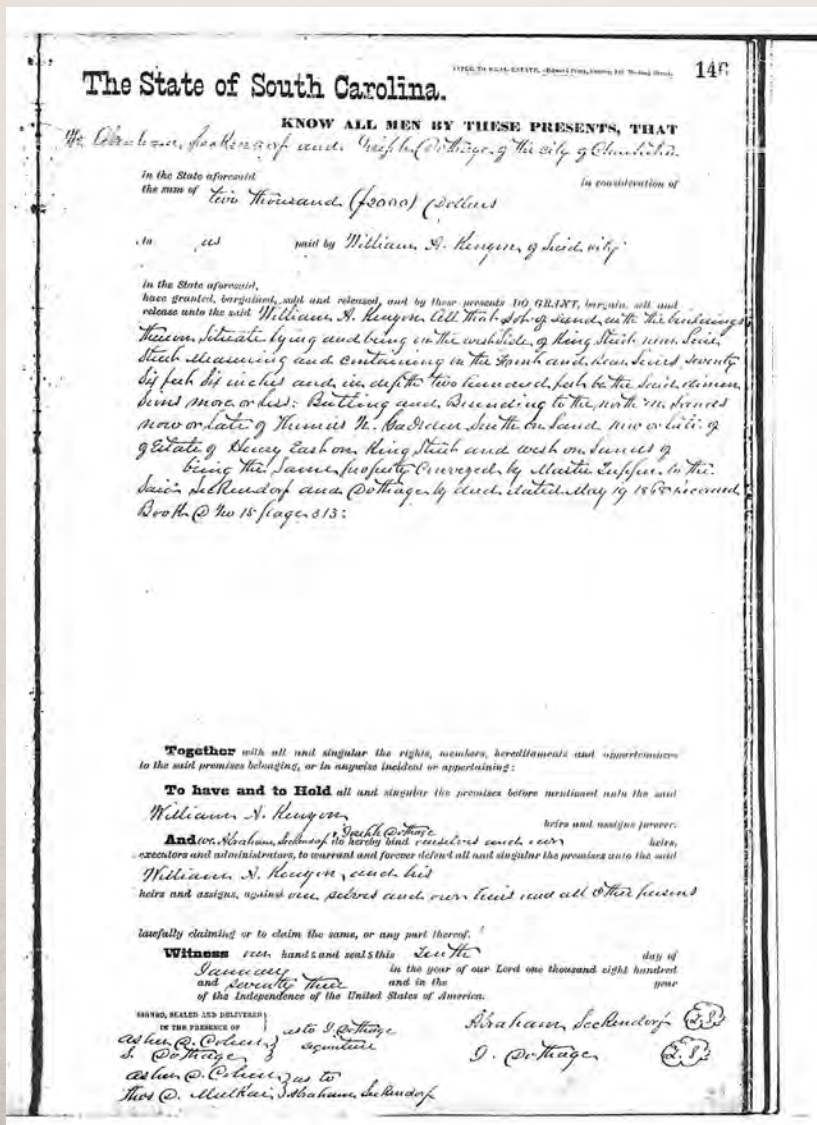 TITLE TO REAL ESTATE.
146
The State of South Carolina.
KNOW ALL MEN BY THESE PRESENTS, THAT
We Abraham Seckendorf and Joseph Dothage of the city of Charleston
in the State aforesaid in consideration of
the sum of two thousand ($2000) Dollars
to us paid by William A. Kenyon of Said city
in the State aforesaid,
have granted, bargained, sold and released, and by these presents DO GRANT, bargain, sell and
release unto the said William A. Kenyon All that Lot of Land with the buildings
thereon Situate lying and being on the west Side of King Street near
Street Measuring and containing in the Front and Rear Lines Seventy
Six feet Six inches and in depth two hundred feet be the Said dimen
sions more or less: Butting and Bounding to the north on Lands
now or Late of Thomas N. Gadsden South on Land now or late of
Estate of Henry East on King Street and west on Lands of
being the Same property Conveyed by Martin to the
Said Seckendorf and Dothage by deed dated May 19 1868 recorded
Book D No 15 page 313:
Together with all and singular the rights, members, hereditaments and appurtenances
to the said premises belonging, or in anywise incident or appertaining:
To have and to Hold all and singular the premises before mentioned unto the said
William A. Kenyon
heirs and assigns forever.
And we Abraham Seckendorf Joseph Dothage do hereby bind ourselves and our heirs,
executors and administrators, to warrant and forever defend all and singular the premises unto the said
William A. Kenyon and his
heirs and assigns, against our selves and our heirs and all other persons
lawfully claiming or to claim the same, or any part thereof.
Witness our hands and seals this Tenth day of
January in the year of our Lord one thousand eight hundred
and seventy three and in the year
of the Independence of the United States of America.
SIGNED, SEALED AND DELIVERED
IN THE PRESENCE OF
Asher D. Cohen as to J. Dothage
S. Dothage signature
Asher D. Cohen as to
Thos D. Abraham Seckendorf
Abraham Seckendorf L.S.
J. Dothage L.S.